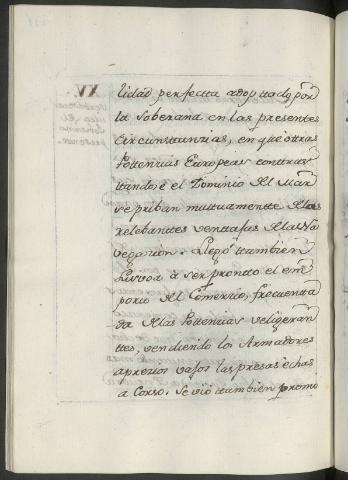 XV.
lidad perfectta adopttada por
la Soberana en las presentes
circunsttanzias, en que ottras
Pottenzias Europeas conttras
ttando e el Dominio del Mar
se priban muttuamentte de las
relebanttes venttajas de la Na
vegazion. Llegò ttambien
Lisvoa à ser prontto el em
porio del Comerzio, frecuentta
da de las Pottenzias veligeran
ttes, vendiendo los Armadores
a prezios vajos las presas echas
a Corso. Se viò ttambien promo